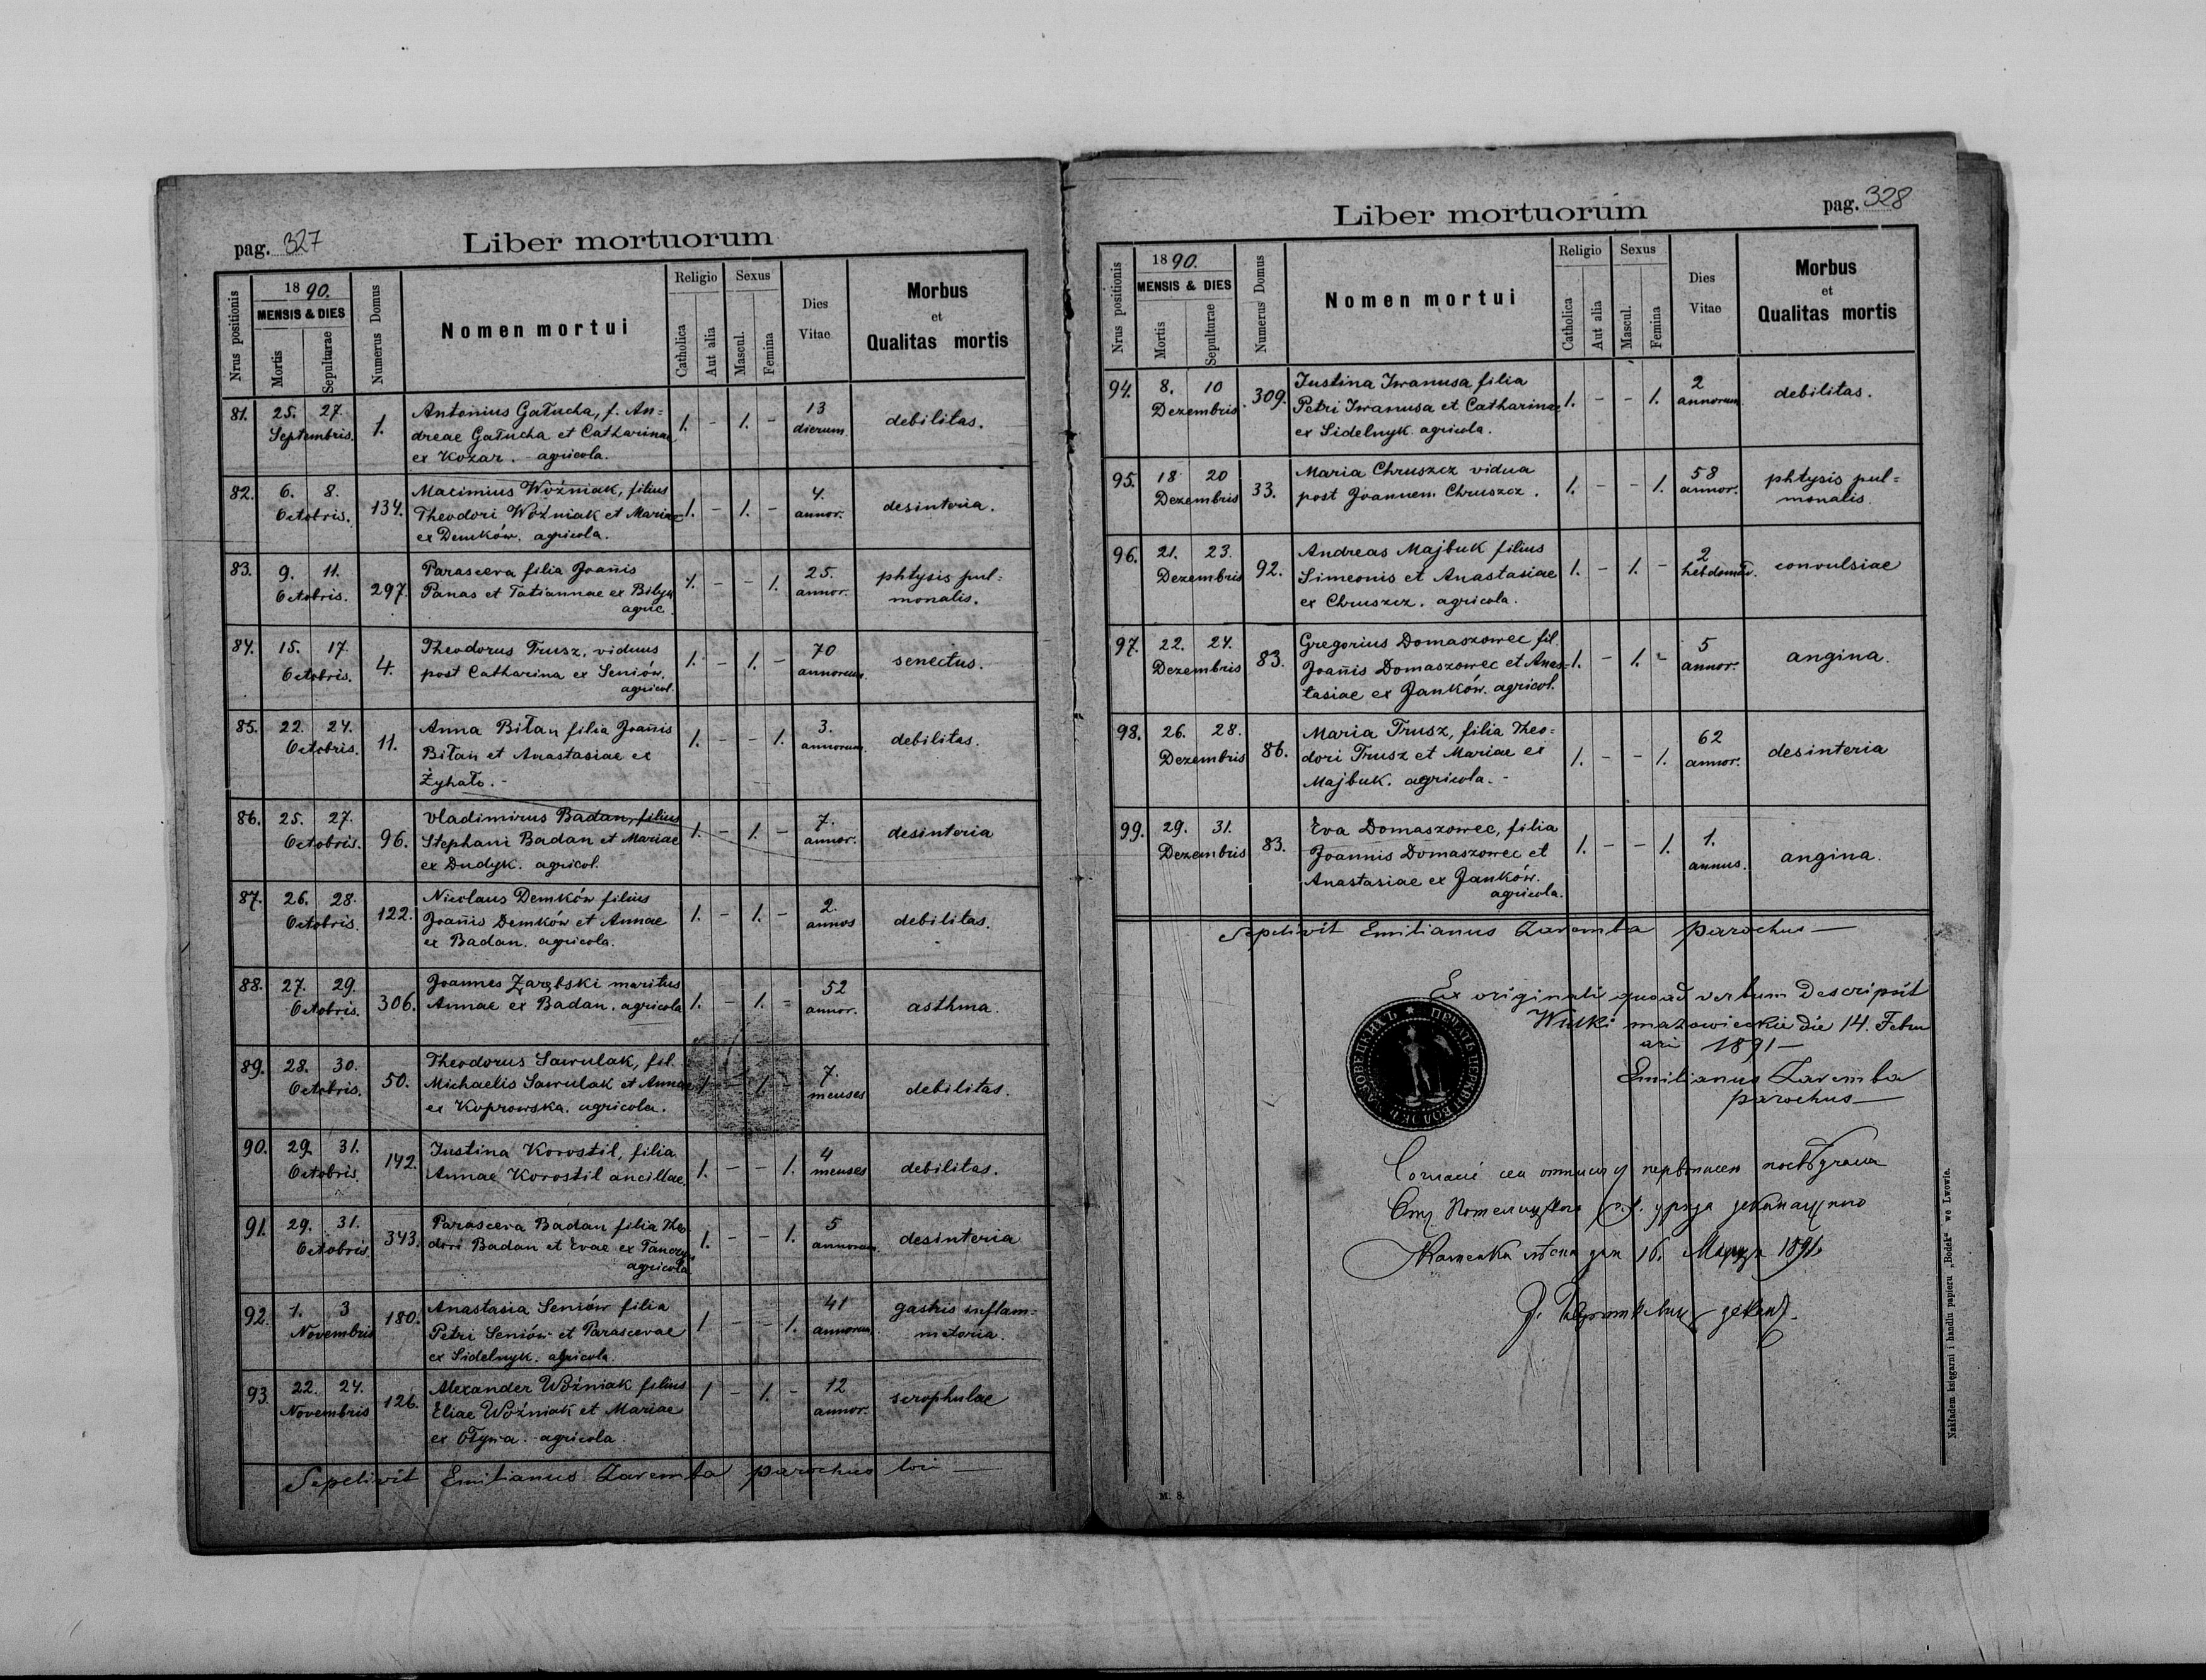 pag. 327
Liber mortuorum
Nrus positionis
1890.
MENSIS & DIES
Mortis
Sepulturae
Numerus Domus
Nomen mortui
Religio
Catholica
Aut alia
Sexus
Mascul.
Femina
Dies
Vitae
Morbus
et
Qualitas mortis
81. 25. 27. Septembris. 1. Antonius Gałucha, f. An=
dreae Gałucha et Catharinae
ex Kozar. agricola. 1. - 1. - 13 dierum debilitas.
82. 6. 8. Octobris. 134. Macimius Woźniak, filius
Theodori Woźniak et Mariae
ex Demków. agricola. 1. - 1. - 4. annor. desinteria.
83. 9. 11. Octobris. 297. Parasceva filia Joañis
Panas et Tatiannae ex Bilyk
agric. 1. - - 1. 25. annor. phtysis pul=
monalis.
84. 15. 17. Octobris. 4. Theodorus Trusz, viduus
post Catharina ex Seniów.
agricol. 1. - 1. - 70 annorum senectus.
85. 22. 24. Octobris. 11. Anna Biłan filia Joañis
Biłan et Anastasiae ex
Żyhało. - 1. - - 1. 3. annorum. debilitas.
86. 25. 27. Octobris. 96. Vladimirus Badan, filius
Stephani Badan et Mariae
ex Dudyk. agricol. 1. - 1. - 7. annor. desinteria
87. 26. 28. Octobris. 122. Nicolaus Demków filius
Joañis Demków et Annae
ex Badan. agricola. 1. - 1. - 2. annos debilitas.
88. 27. 29. Octobris. 306. Joannes Zarębski maritus
Annae ex Badan. agricola 1. - 1. - 52 annor. asthma.
89. 28. 30. Octobris. 50. Theodorus Sawulak, fil.
Michaelis Sawulak et Annae
ex Koprowska. agricola. 1. - 1. - 7. menses debilitas.
90. 29. 31. Octobris. 142. Iustina Korostil, filia
Annae Korostil ancillae. 1. - - 1. 4 menses debilitas.
91. 29. 31. Octobris. 343. Parasceva Badan filia Theo
dori Badan et Evae ex
agricola 1. - - 1. 5 annorum. desinteria
92. 1. 3 Novembris 180. Anastasia Seniów filia
Petri Seniów et Parascevae
ex Sidelnyk. agricola. 1 - - 1. 41 annorum. gastris inflam=
matoria.
93. 22. 24. Novembris 126. Alexander Woźniak filius
Eliae Woźniak et Mariae
ex Ołyna. agricola. 1 - 1. - 12 annor. scrophulae
Sepelivit Emilianus Zaremba parochus loci
pag. 328
Liber mortuorum
Nrus positionis
1890.
MENSIS & DIES
Mortis
Sepulturae
Numerus Domus
Nomen mortui
Religio
Catholica
Aut alia
Sexus
Mascul.
Femina
Dies
Vitae
Morbus
et
Qualitas mortis
94. 8. 10 Dezembris. 309. Iustina Iwanusa filia
Petri Iwanusa et Catharinae
ex Sidelnyk. agricola. 1. - - 1. 2 annorum debilitas.
95. 18 20 Dezembris 33. Maria Chruszcz vidua
post Joannem Chruszcz. 1. - - 1. 58 annor. phtysis pul=
monalis.
96. 21. 23. Dezembris 92. Andreas Majbuk filius
Simeonis et Anastasiae
ex Chruszcz. agricola. 1. - 1. - 2 hebdomad. convulsiae
97. 22. 24. Dezembris 83. Gregorius Domaszowec fil.
Joañis Domaszowec et Anas=
tasiae ex Janków. agricol. 1. - 1. - 5 annor. angina.
98. 26. 28. Dezembris 86. Maria Trusz, filia Theo=
dori Trusz et Mariae ex
Majbuk. agricola. - 1. - - 1. 62 annor. desinteria
99. 29. 31. Dezembris 83. Eva Domaszowec, filia
Joannis Domaszowec et
Anastasiae ex Janków.
agricola. 1. - - 1. 1. annus. angina.
Sepelivit Emilianus Zaremba parochus
Ex originali quoad verbum descripsit
Wulki mazowieckie die 14. Febru
ari 1891
Emilianus Zaremba
parochus
16. 1891
M. 8.
Nakładem księgarni i handlu papieru „Bodek“ we Lwowie.